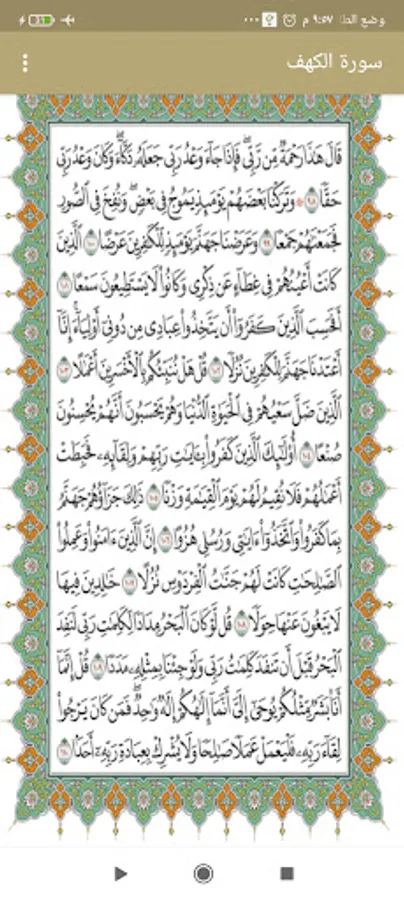 وضع الط.. ٩:٥٧ م ...
سورة الكهف
قَالَ هَٰذَا رَحْمَةٌ مِّن رَّبِّي ۖ فَإِذَا جَاءَ وَعْدُ رَبِّي جَعَلَهُ دَكَّاءَ ۖ وَكَانَ وَعْدُ رَبِّي
حَقًّا ٩٨ ۞ وَتَرَكْنَا بَعْضَهُمْ يَوْمَئِذٍ يَمُوجُ فِي بَعْضٍ ۖ وَنُفِخَ فِي الصُّورِ
فَجَمَعْنَاهُمْ جَمْعًا ٩٩ وَعَرَضْنَا جَهَنَّمَ يَوْمَئِذٍ لِّلْكَافِرِينَ عَرْضًا ١٠٠ الَّذِينَ
كَانَتْ أَعْيُنُهُمْ فِي غِطَاءٍ عَن ذِكْرِي وَكَانُوا لَا يَسْتَطِيعُونَ سَمْعًا ١٠١
أَفَحَسِبَ الَّذِينَ كَفَرُوا أَن يَتَّخِذُوا عِبَادِي مِن دُونِي أَوْلِيَاءَ ۚ إِنَّا
أَعْتَدْنَا جَهَنَّمَ لِلْكَافِرِينَ نُزُلًا ١٠٢ قُلْ هَلْ نُنَبِّئُكُم بِالْأَخْسَرِينَ أَعْمَالًا ١٠٣
الَّذِينَ ضَلَّ سَعْيُهُمْ فِي الْحَيَاةِ الدُّنْيَا وَهُمْ يَحْسَبُونَ أَنَّهُمْ يُحْسِنُونَ
صُنْعًا ١٠٤ أُولَٰئِكَ الَّذِينَ كَفَرُوا بِآيَاتِ رَبِّهِمْ وَلِقَائِهِ فَحَبِطَتْ
أَعْمَالُهُمْ فَلَا نُقِيمُ لَهُمْ يَوْمَ الْقِيَامَةِ وَزْنًا ١٠٥ ذَٰلِكَ جَزَاؤُهُمْ جَهَنَّمُ
بِمَا كَفَرُوا وَاتَّخَذُوا آيَاتِي وَرُسُلِي هُزُوًا ١٠٦ إِنَّ الَّذِينَ آمَنُوا وَعَمِلُوا
الصَّالِحَاتِ كَانَتْ لَهُمْ جَنَّاتُ الْفِرْدَوْسِ نُزُلًا ١٠٧ خَالِدِينَ فِيهَا
لَا يَبْغُونَ عَنْهَا حِوَلًا ١٠٨ قُل لَّوْ كَانَ الْبَحْرُ مِدَادًا لِّكَلِمَاتِ رَبِّي لَنَفِدَ
الْبَحْرُ قَبْلَ أَن تَنفَدَ كَلِمَاتُ رَبِّي وَلَوْ جِئْنَا بِمِثْلِهِ مَدَدًا ١٠٩ قُلْ إِنَّمَا
أَنَا بَشَرٌ مِّثْلُكُمْ يُوحَىٰ إِلَيَّ أَنَّمَا إِلَٰهُكُمْ إِلَٰهٌ وَاحِدٌ ۖ فَمَن كَانَ يَرْجُوا
لِقَاءَ رَبِّهِ فَلْيَعْمَلْ عَمَلًا صَالِحًا وَلَا يُشْرِكْ بِعِبَادَةِ رَبِّهِ أَحَدًا ١١٠